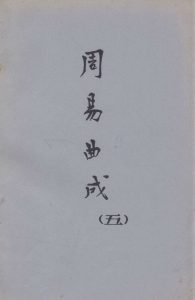 周易曲成
(五)